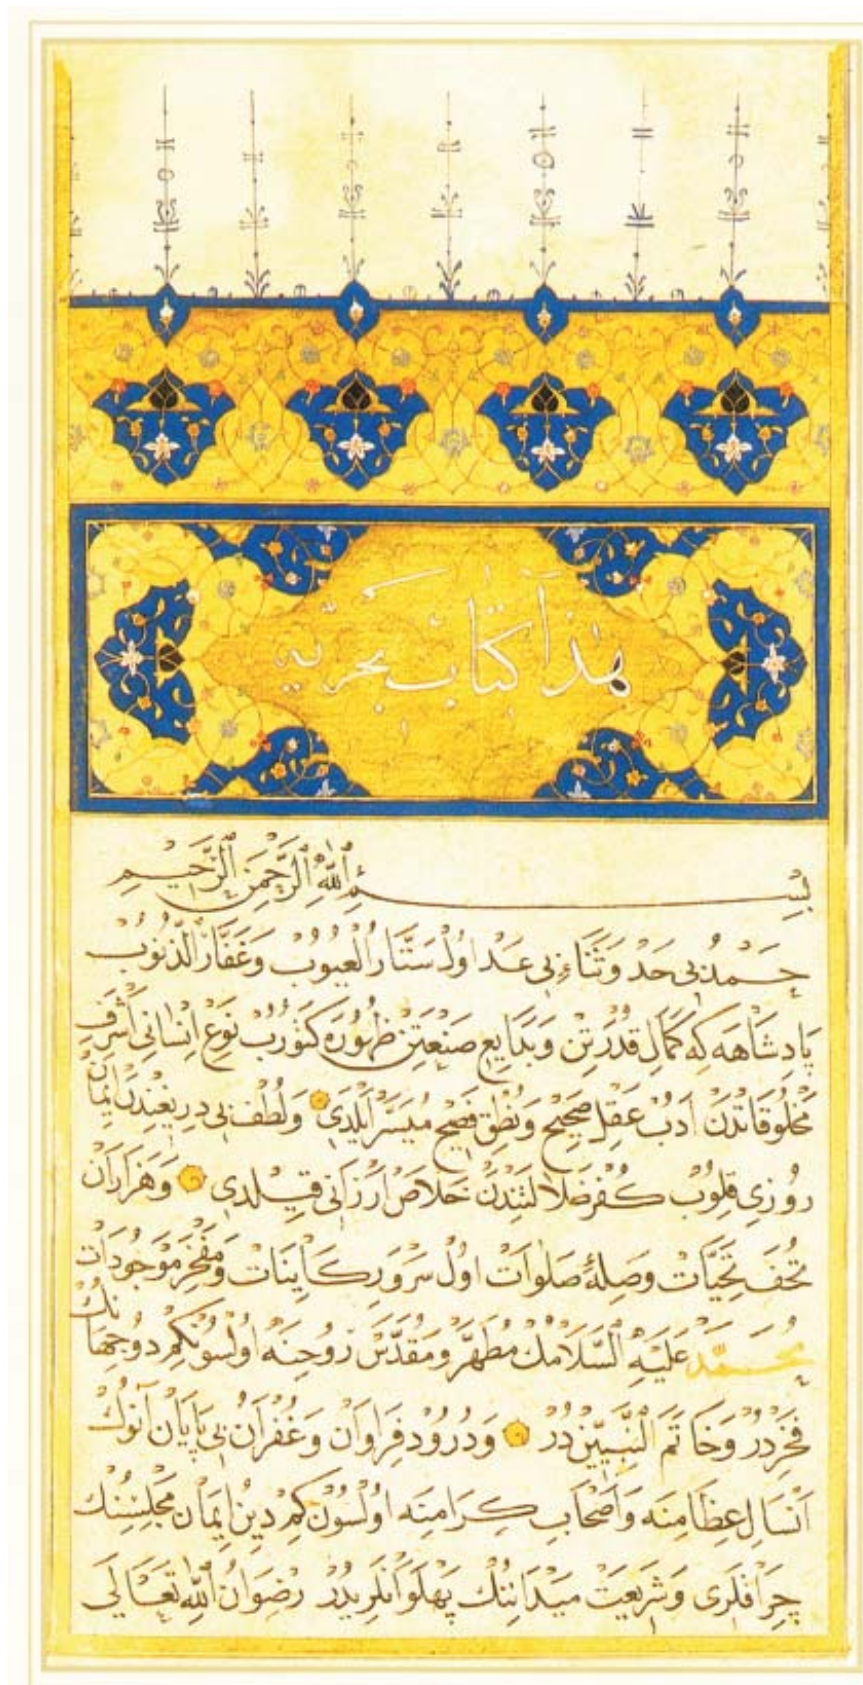 هذا كتاب بحريه
بِسْمِ اللهِ الرَّحْمٰنِ الرَّحِيمِ
حمد بى حد وثناء بى عد اول ستار العيوب وغفار الذنوب
پادشاهه كه كمال قدرتن وبدايع صنعتن ظهوره كتورب نوع انسانى اشرف
مخلوقاتدن ادب عقل صحيح ونطق فصيح ميسر ايلدى ولطف بى دريغندن ايمان
روزى قلوب كفر ضلالتندن خلاص ارزانى قيلدى وهزاران
تحف تحيات وصلهٔ صلوات اول سرور كاينات ومفخر موجودات
محمد عليه السلامك مطهر ومقدس روحنه اولسونكم دو جهانك
فخردر وخاتم النبيين در ودرود فراوان وغفران بى پايان آنوك
انسال عظامنه واصحاب كرامنه اولسون كم دين ايمان مجلسنك
چراقلرى وشريعت ميدانتك پهلوانلريدر رضوان الله تعالى